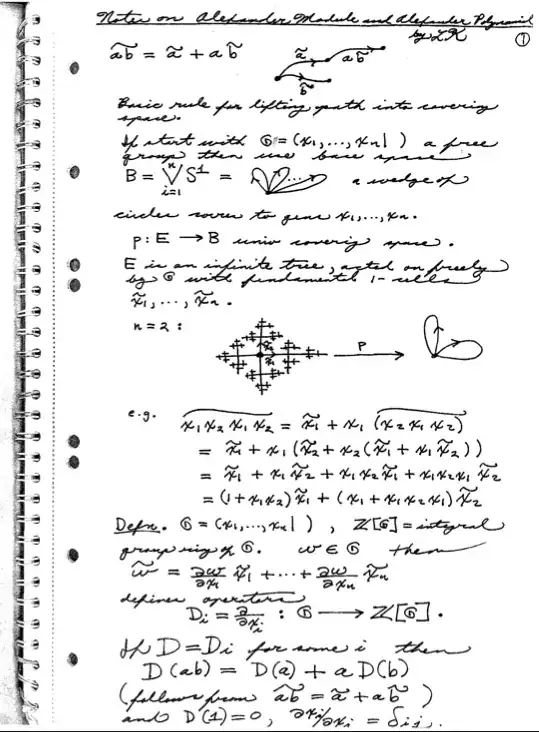 Notes on Alexander Module and Alexander Polynomial
by LK ①
\widetilde{ab} = ã + a b̃ ã a b̃
b̃
Basic rule for lifting path into covering
space.
If start with G = (x₁,...,xₙ| ) a free
group then use base space
B = ⋁ⁿᵢ₌₁ S¹ = ... a wedge of
circles corres to gens x₁,...,xₙ.
p: E → B univ covering space.
E is an infinite tree, acted on freely
by G with fundamental 1-cells
x̃₁, ..., x̃ₙ.
n = 2 : x̃₂ x̃₁ P
e.g. \widetilde{x₁x₂x₁x₂} = x̃₁ + x₁ (\widetilde{x₂x₁x₂})
= x̃₁ + x₁(x̃₂ + x₂(x̃₁ + x₁x̃₂))
= x̃₁ + x₁x̃₂ + x₁x₂x̃₁ + x₁x₂x₁x̃₂
= (1 + x₁x₂)x̃₁ + (x₁ + x₁x₂x₁)x̃₂
Defn. G = (x₁,...,xₙ| ) , ℤ[G] = integral
group ring of G. w ∈ G then
w̃ = ∂w/∂x₁ x̃₁ + ··· + ∂w/∂xₙ x̃ₙ
defines operators
Dᵢ = ∂/∂xᵢ : G → ℤ[G].
If D = Dᵢ for some i then
D(ab) = D(a) + a D(b)
(follows from \widetilde{ab} = ã + a b̃ )
and D(1) = 0, ∂xᵢ/∂xⱼ = δᵢⱼ.